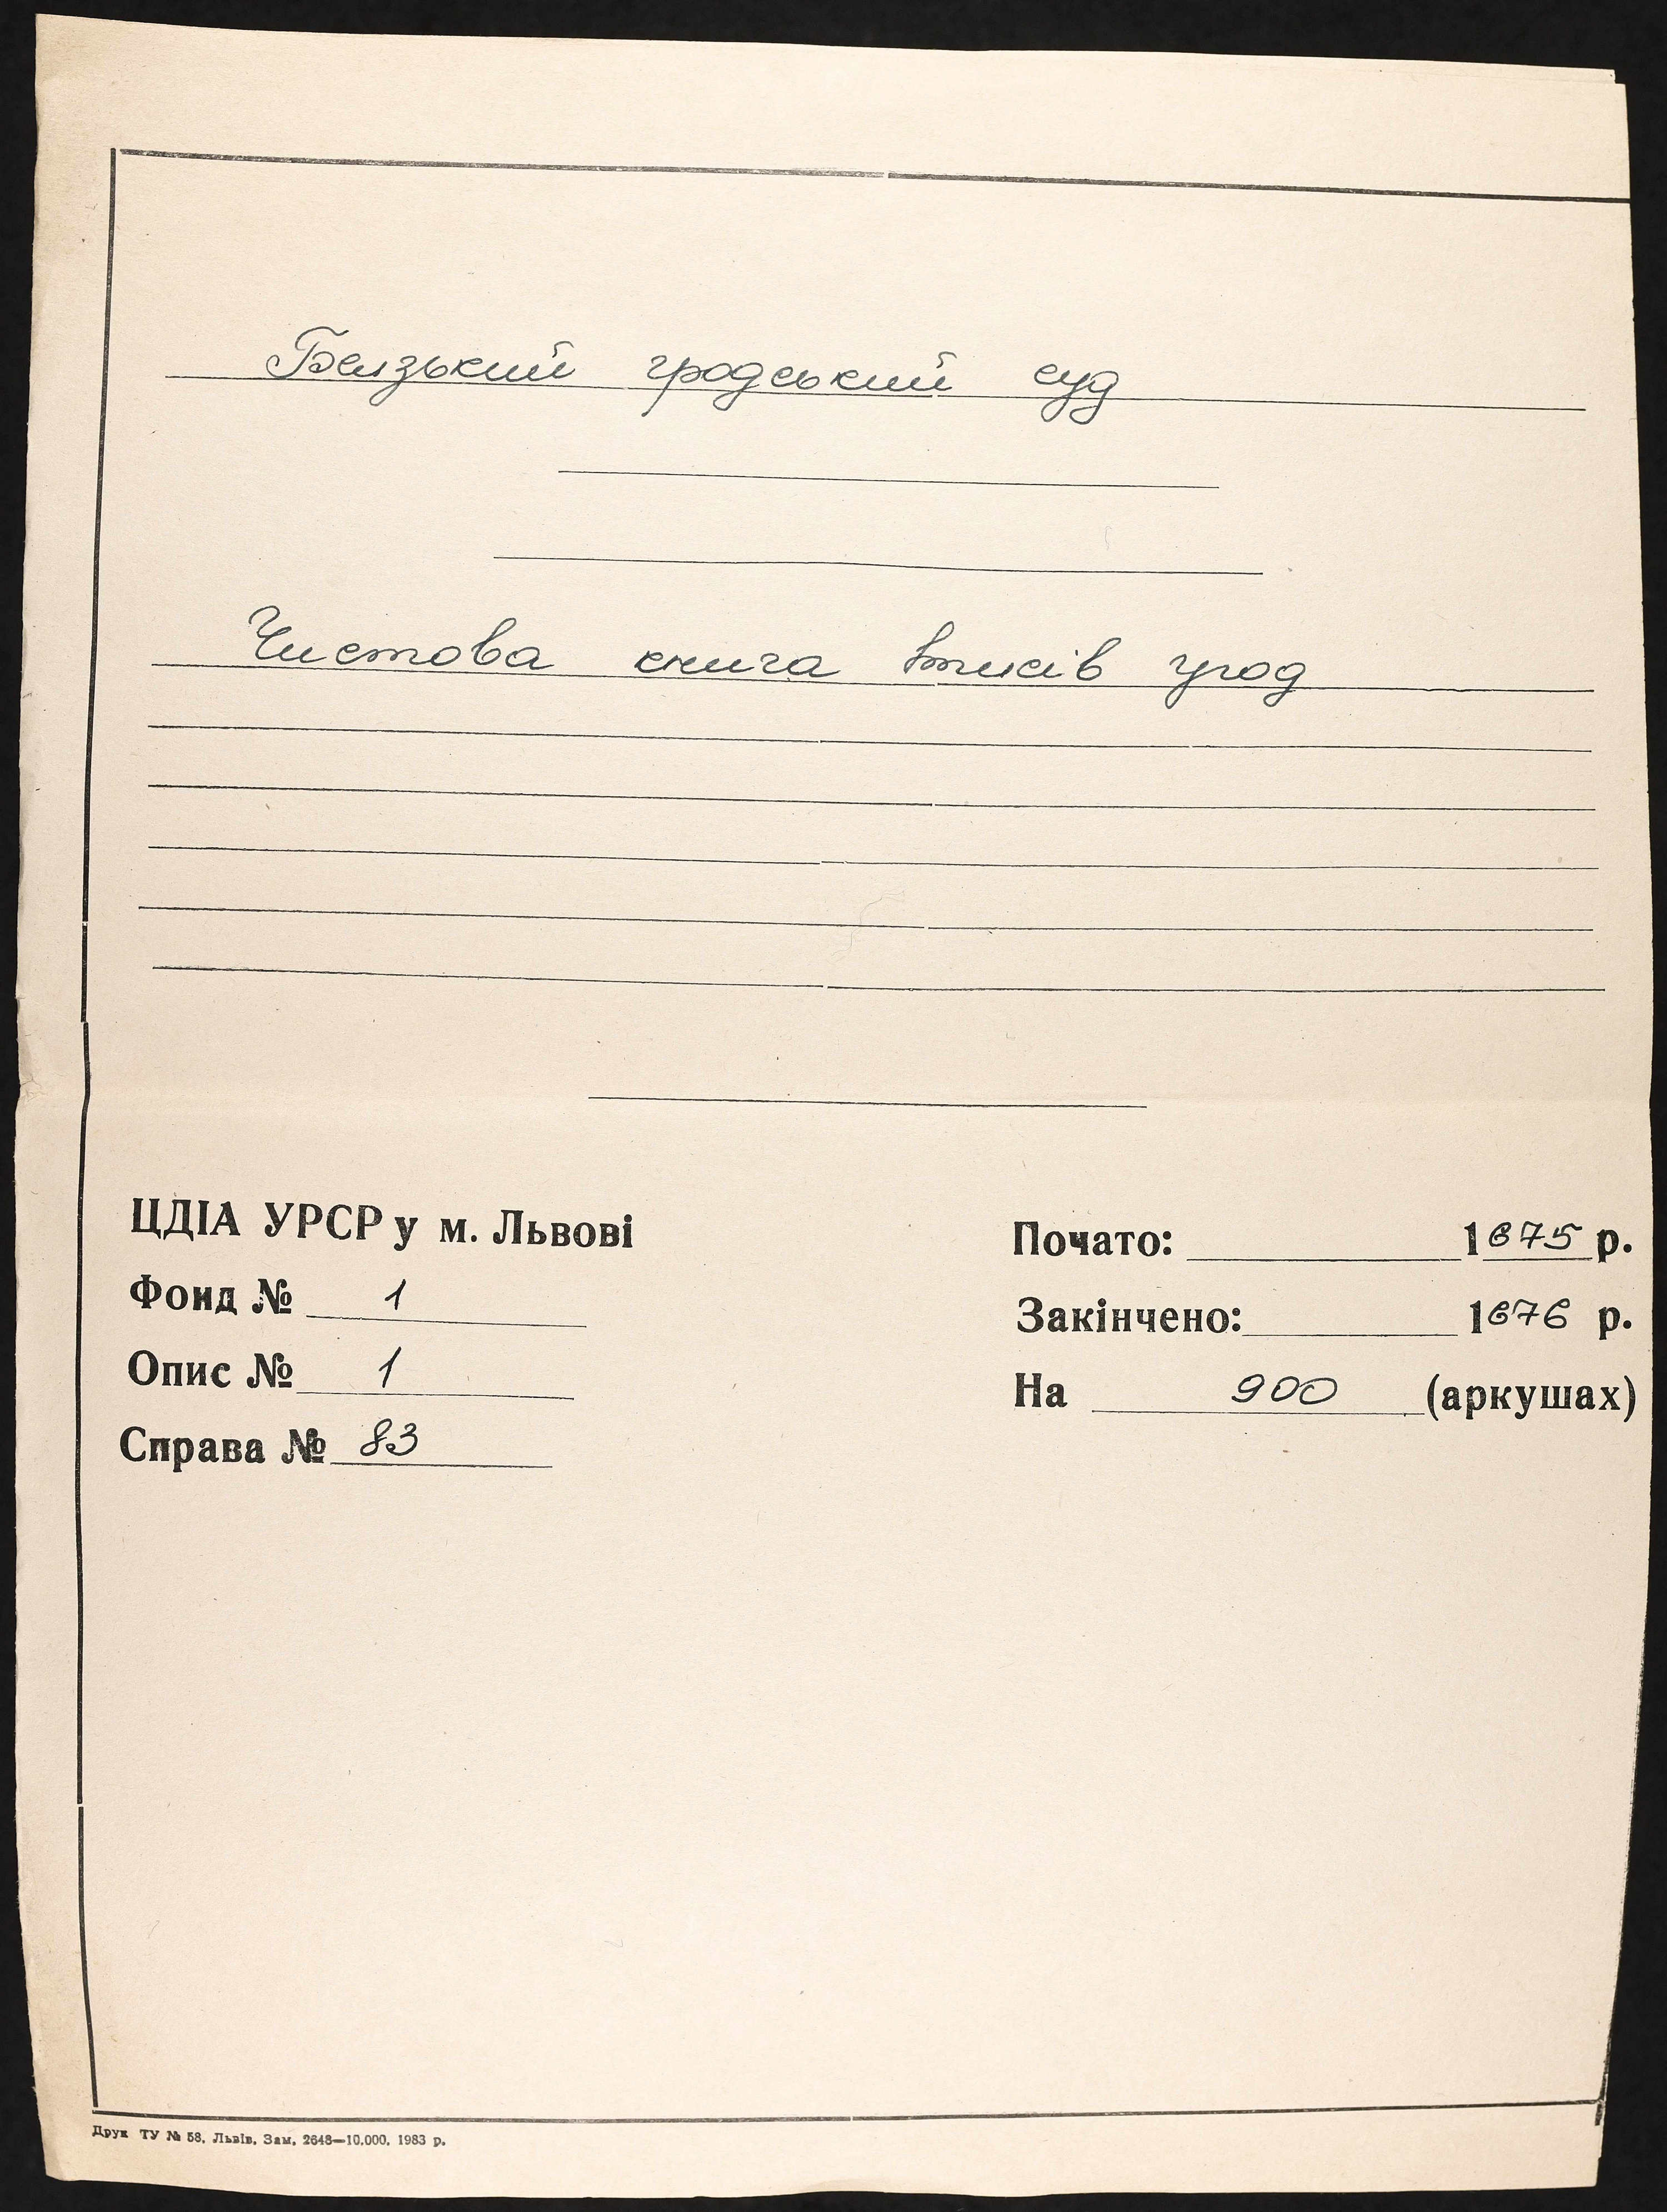 Белзький гродський суд
Чистова книга записів угод
ЦДІА УРСР у м. Львові
Фонд № 1
Опис № 1
Справа № 83
Почато: 1675 р.
Закінчено: 1676 р.
На 900 (аркушах)
Друк ТУ № 58, Львів, Зам. 2648—10.000. 1983 р.